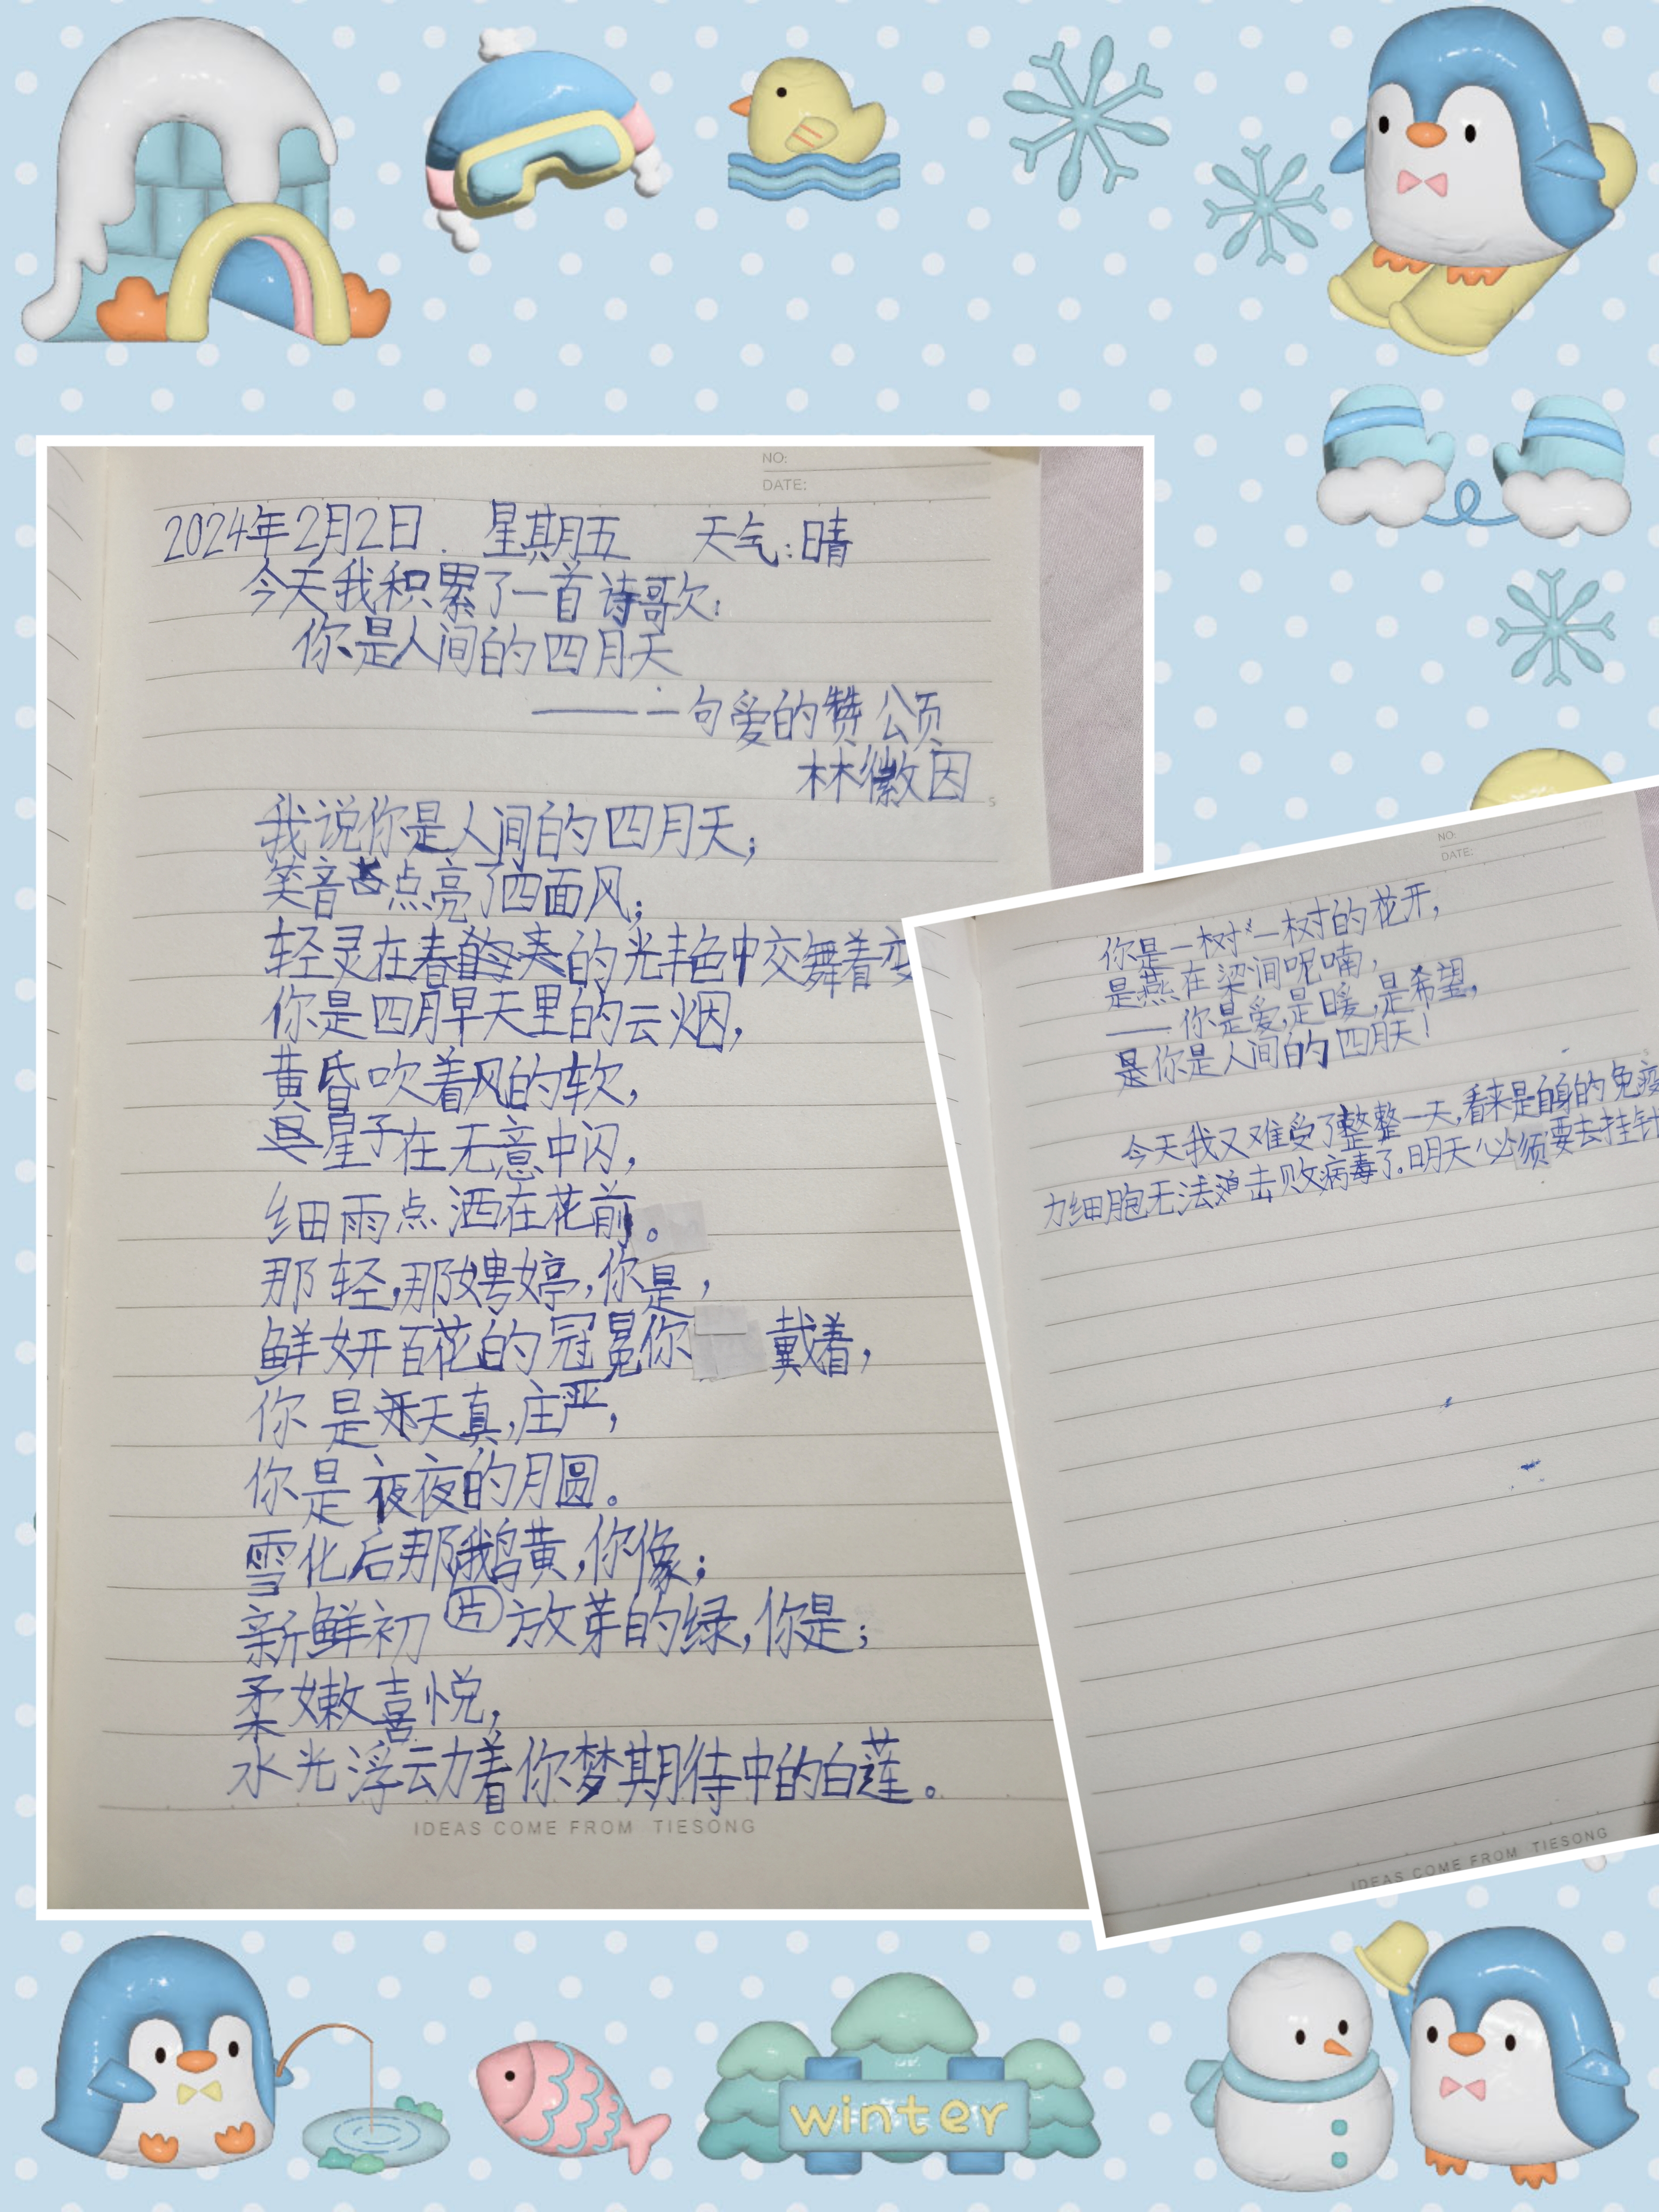 NO:
DATE:
2024年2月2日. 星期五 天气:晴
今天我积累了一首诗歌:
你是人间的四月天
——一句爱的赞颂
林徽因
我说你是人间的四月天;
笑音点亮了四面风;
轻灵在春的光艳中交舞着变
你是四月早天里的云烟,
黄昏吹着风的软,
星子在无意中闪,
细雨点洒在花前。
那轻,那娉婷,你是,
鲜妍百花的冠冕你戴着,
你是天真,庄严,
你是夜夜的月圆。
雪化后那鹅黄,你像;
新鲜初放芽的绿,你是;
柔嫩喜悦,
水光浮动着你梦期待中的白莲。
IDEAS COME FROM TIESONG
NO:
DATE:
你是一树一树的花开,
是燕在梁间呢喃,
——你是爱,是暖,是希望,
你是人间的四月天!
今天我又难受了整整一天,看来是自身的免疫
力细胞无法击败病毒了。明天必须要去挂针
IDEAS COME FROM TIESONG
winter